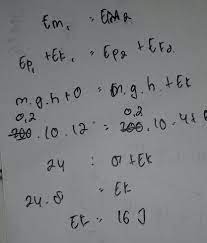 Em₁ = EM2
Ep₁ + Ek₁ = Ep2 + Ek2
m.g.h + 0 = m.g.h. + Ek
0,2 0,2
200 . 10 . 12 = 200 . 10 . 4 + E
24 = 8 + Ek
24 - 8 = Ek
Ek = 16 J